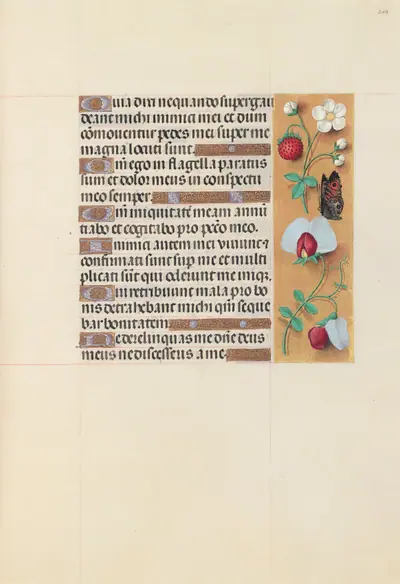 Quia dixi nequando supergau
deant michi inimici mei et dum
cōmoventur pedes mei super me
magna locuti sunt.
Qm̄ ego in flagella paratus
sum et dolor meus in conspectu
meo semper.
Qm̄ iniquitatē meam annū
tiabo et cogitabo pro pcc̄o meo.
Inimici autem mei vivunt et
confirmati sunt sup me et multi
plicati sūt qui oderunt me iniq̄.
Qui retribuunt mala pro bo
nis detrahebant michi qm̄ seque
bar bonitatem
Ne derelinquas me dn̄e deus
meus ne discesseris a me.